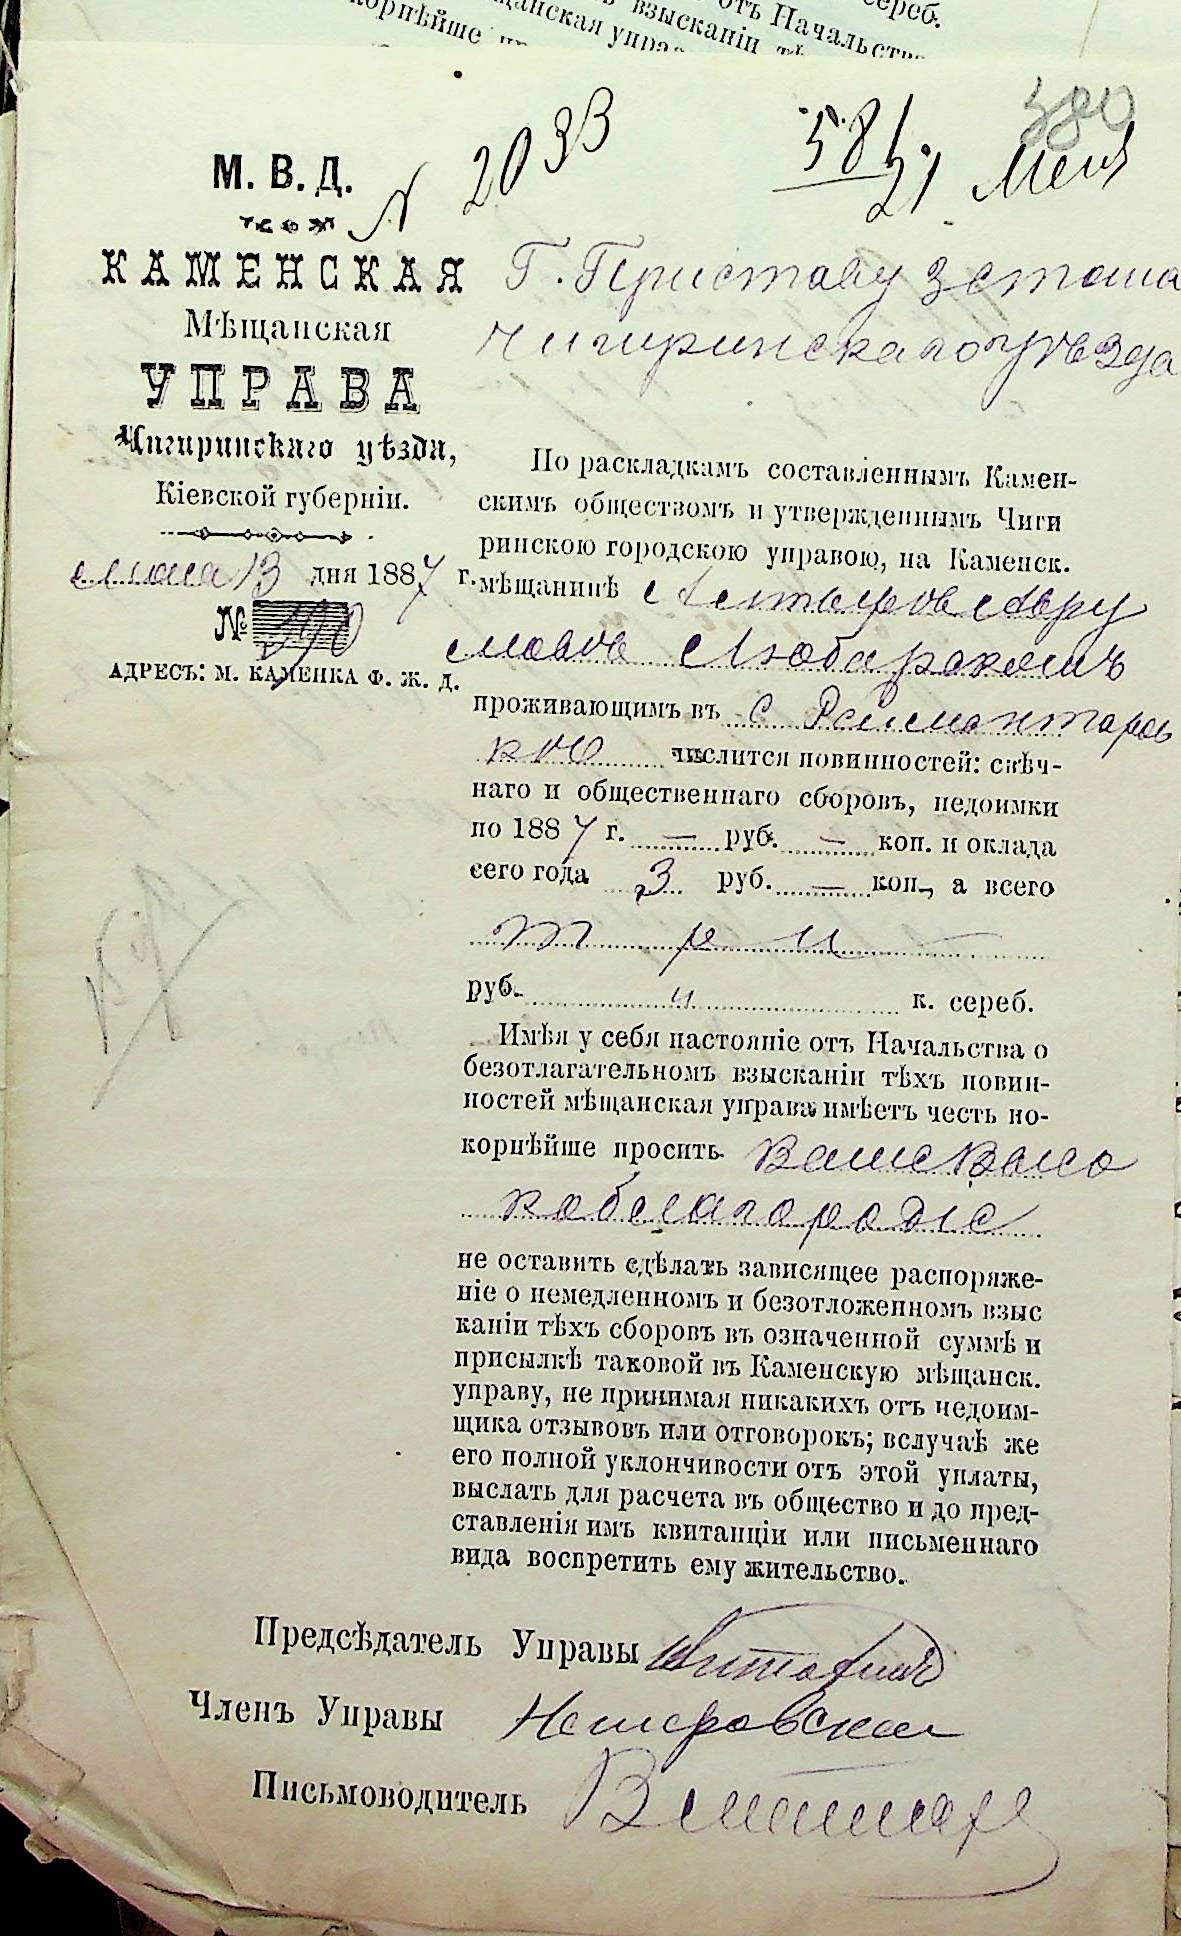 сереб.
отъ Начальства
взысканіи тѣ
щанская управ
корнѣйше
380
№ 2033
581
21 Мая
М. В. Д.
КАМЕНСКАЯ
Мѣщанская
УПРАВА
Чигиринскаго уѣзда,
Кіевской губерніи.
мая 13 дня 1887 г.
№ 290
АДРЕСЪ: М. КАМЕНКА Ф. Ж. Д.
Г. Приставу 3 стана
Чигиринскаго уѣзда
По раскладкамъ составленнымъ Камен-
скимъ обществомъ и утвержденнымъ Чиги
ринскою городскою управою, на Каменск.
мѣщанинѣ Авру
мовѣ Любарскомъ
проживающимъ въ с Реймантаров
кѣ числится повинностей: свѣч-
наго и общественнаго сборовъ, недоимки
по 1887 г. — руб. — коп. и оклада
сего года 3 руб. — коп., а всего
три
руб. и к. сереб.
Имѣя у себя настояніе отъ Начальства о
безотлагательномъ взысканіи тѣхъ повин-
ностей мѣщанская управа имѣетъ честь по-
корнѣйше просить Ваше Высо
коблагородіе
не оставить сдѣлать зависящее распоряже-
ніе о немедленномъ и безотложенномъ взыс
каніи тѣхъ сборовъ въ означенной суммѣ и
присылкѣ таковой въ Каменскую мѣщанск.
управу, не принимая никакихъ отъ недоим-
щика отзывовъ или отговорокъ; вслучаѣ же
его полной уклончивости отъ этой уплаты,
выслать для расчета въ общество и до пред-
ставленія имъ квитанціи или письменнаго
вида воспретить ему жительство.
Предсѣдатель Управы
Членъ Управы
Письмоводитель